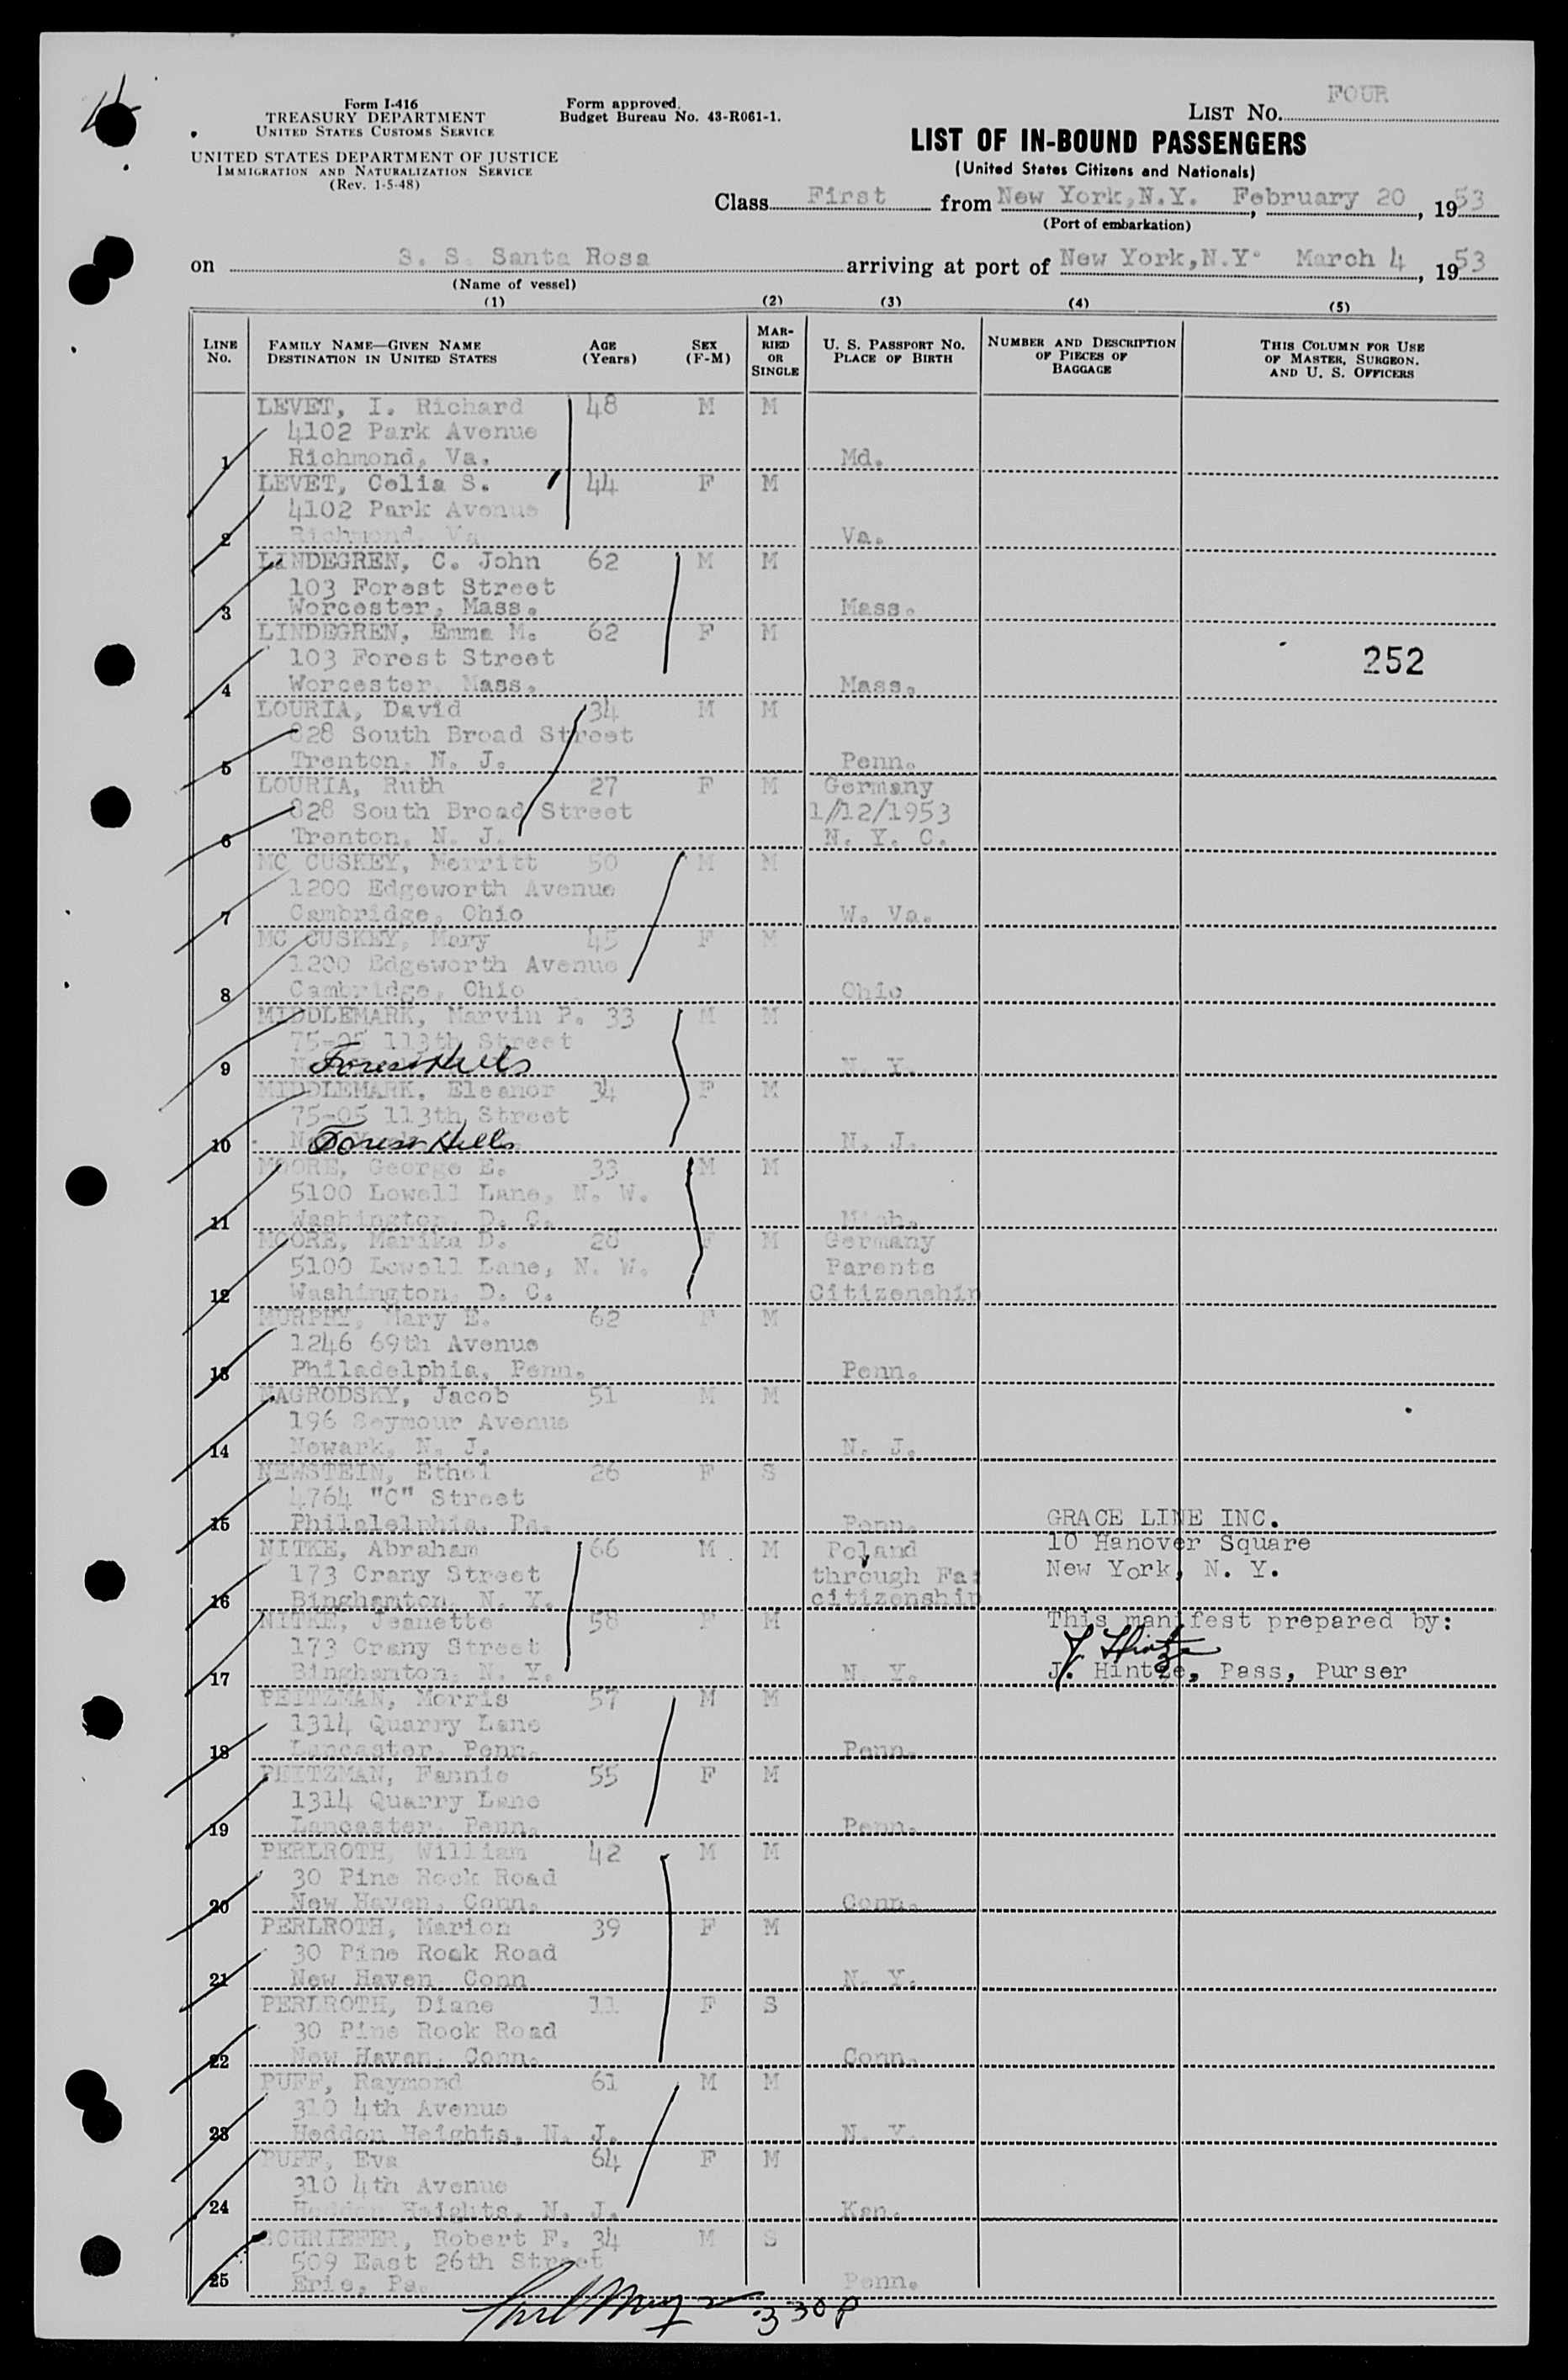 Form I-416
TREASURY DEPARTMENT
UNITED STATES CUSTOMS SERVICE
UNITED STATES DEPARTMENT OF JUSTICE
IMMIGRATION AND NATURALIZATION SERVICE
(Rev. 1-5-48)
Form approved.
Budget Bureau No. 43-R061-1.
LIST NO. FOUR
LIST OF IN-BOUND PASSENGERS
(United States Citizens and Nationals)
Class First from New York, N.Y. , February 20 , 1953
(Port of embarkation)
on S. S. Santa Rosa arriving at port of New York, N.Y. March 4 , 1953
(Name of vessel)
(1) (2) (3) (4) (5)
LINE NO. FAMILY NAME—GIVEN NAME DESTINATION IN UNITED STATES AGE (Years) SEX (F-M) MARRIED OR SINGLE U. S. PASSPORT NO. PLACE OF BIRTH NUMBER AND DESCRIPTION OF PIECES OF BAGGAGE THIS COLUMN FOR USE OF MASTER, SURGEON, AND U. S. OFFICERS
LEVET, I. Richard 48 M M
4102 Park Avenue
1 Richmond, Va. Md.
LEVET, Celia S. 44 F M
4102 Park Avenue
2 Richmond, Va Va.
LINDEGREN, C. John 62 M M
103 Forest Street
3 Worcester, Mass. Mass.
LINDEGREN, Emma M. 62 F M
103 Forest Street 252
4 Worcester, Mass. Mass.
LOURIA, David 34 M M
828 South Broad Street
5 Trenton, N. J. Penn.
LOURIA, Ruth 27 F M Germany
828 South Broad Street 1/12/1953
6 Trenton, N. J. N. Y. C.
MC CUSKEY, Merritt 50 M M
1200 Edgeworth Avenue
7 Cambridge, Ohio W. Va.
MC CUSKEY, Mary 45 F M
1200 Edgeworth Avenue
8 Cambridge, Ohio Ohio
MIDDLEMARK, Marvin P. 33 M M
75-05 113th Street
9 Forest Hills N. Y.
MIDDLEMARK, Eleanor 34 F M
75-05 113th Street
10 Forest Hills N. J.
MOORE, George E. 33 M M
5100 Lowell Lane, N. W.
11 Washington, D. C. Mich.
MOORE, Marika D. 28 F M Germany
5100 Lowell Lane, N. W. Parents
12 Washington, D. C. Citizenship
MURPHY, Mary E. 62 F M
1246 69th Avenue
13 Philadelphia, Penn. Penn.
NAGRODSKY, Jacob 51 M M
196 Seymour Avenue
14 Newark, N. J. N. J.
NEWSTEIN, Ethel 26 F S
4764 "C" Street
15 Philalelphia, Pa. Penn. GRACE LINE INC.
NITKE, Abraham 66 M M Poland 10 Hanover Square
173 Crany Street through Fa: New York, N. Y.
16 Binghamton, N. Y. citizenship
NITKE, Jeanette 58 F M This manifest prepared by:
173 Crany Street
17 Binghamton, N. Y. N. Y. J. Hintze, Pass, Purser
PEITZMAN, Morris 57 M M
1314 Quarry Lane
18 Lancaster, Penn. Penn.
PEITZMAN, Fannie 55 F M
1314 Quarry Lane
19 Lancaster, Penn. Penn.
PERLROTH, William 42 M M
30 Pine Rock Road
20 New Haven, Conn. Conn.
PERLROTH, Marion 39 F M
30 Pine Rock Road
21 New Haven Conn N. Y.
PERLROTH, Diane 11 F S
30 Pine Rock Road
22 New Haven, Conn. Conn.
PUFF, Raymond 61 M M
310 4th Avenue
23 Heddon Heights, N. J. N. Y.
PUFF, Eva 64 F M
310 4th Avenue
24 Heddon Heights, N. J. Kan.
SCHRIEFER, Robert F. 34 M S
509 East 26th Street
25 Erie, Pa. Penn.
330 P